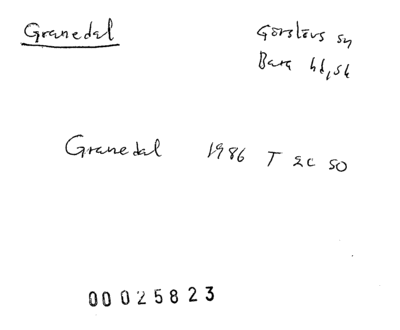 Granedal
Görslövs sn
Bara hd, Sk
Granedal 1986 T 2C SO
00025823